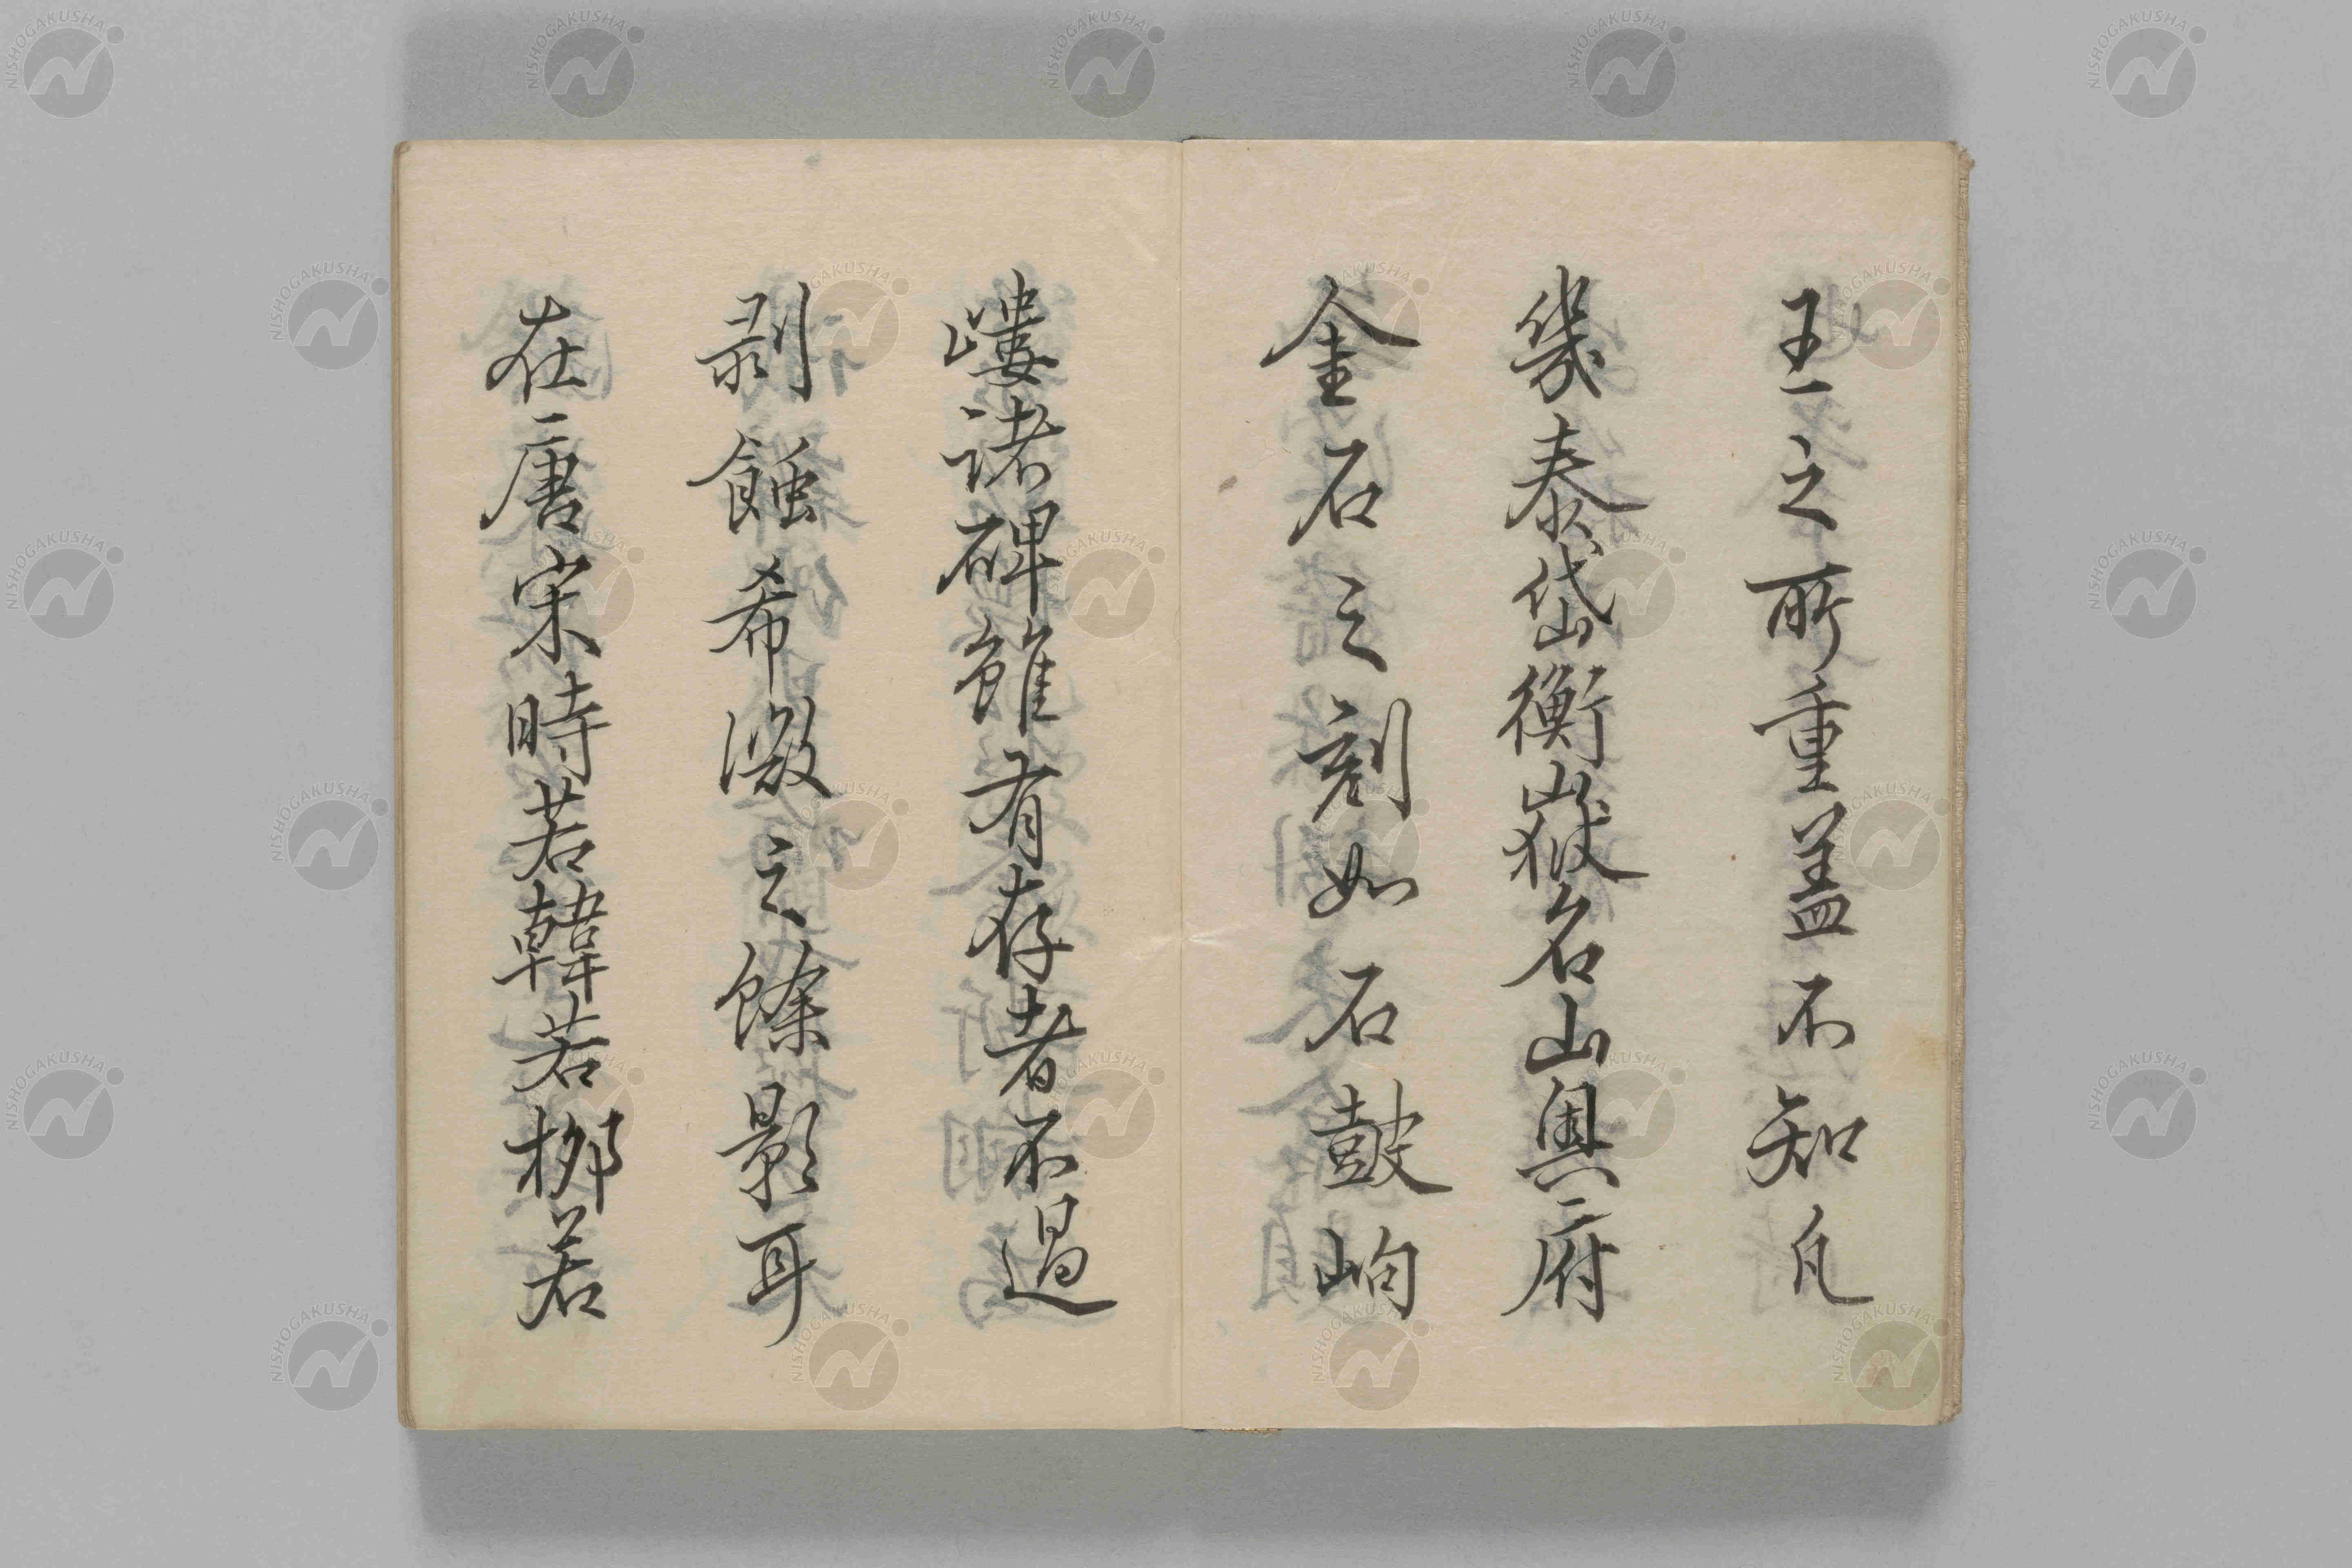 王之所重盖不知凡
幾泰岱衡嶽名山奥府
金石之刻如石鼓岣
嶁諸碑雖有存者不過
剥蝕希微之餘影耳
在唐宋時若韓若栁若
NISHOGAKUSHA